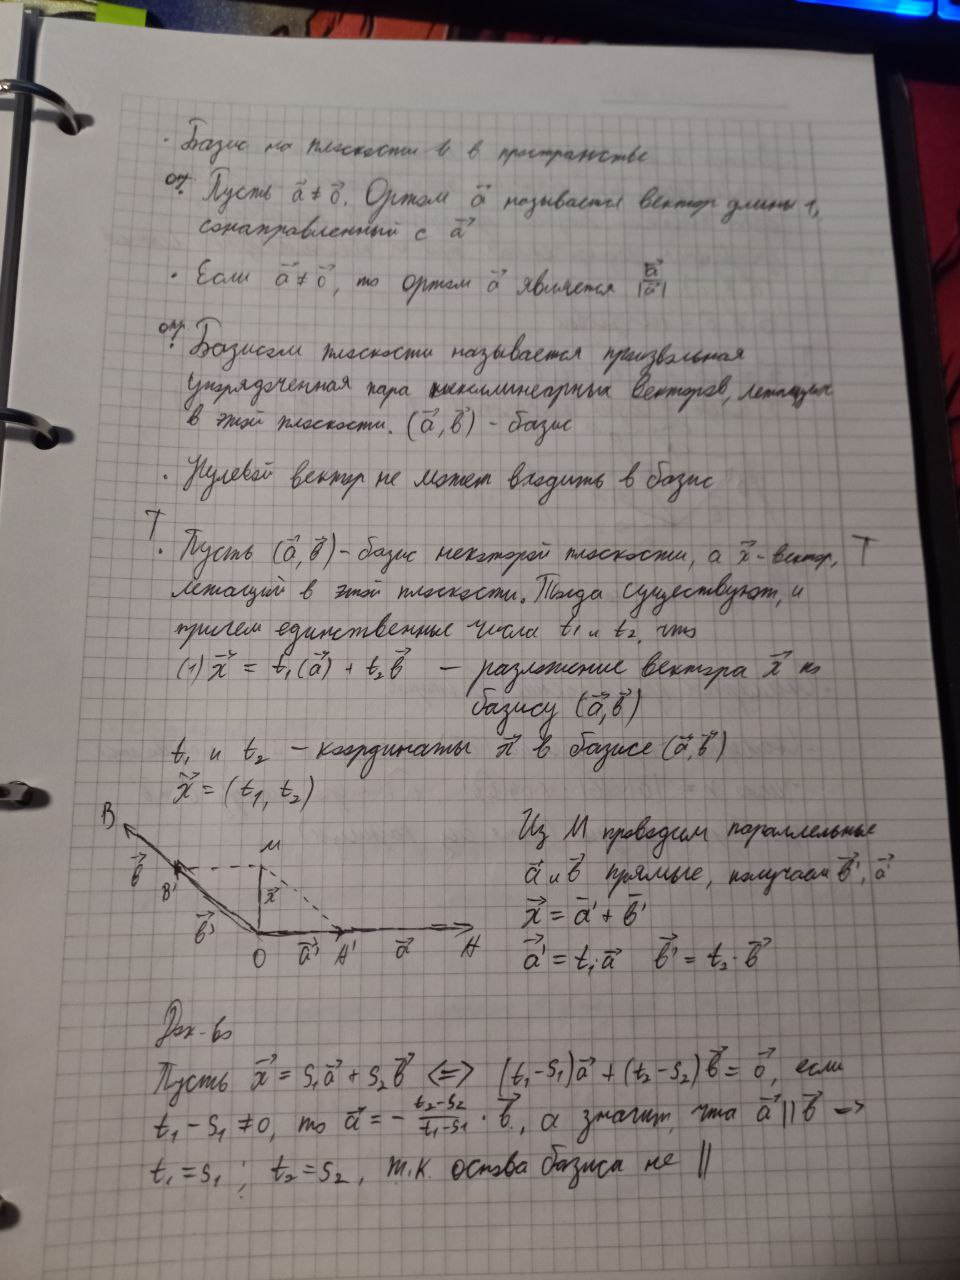 · Базис на плоскости и в пространстве
оп. Пусть a⃗ ≠ 0⃗. Ортом a⃗ называется вектор длины 1,
сонаправленный с a⃗
· Если a⃗ ≠ 0⃗, то ортом a⃗ является a⃗/|a⃗|
опр. Базисом плоскости называется произвольная
упорядоченная пара неколлинеарных векторов, лежащих
в этой плоскости. (a⃗, b⃗) - базис
· Нулевой вектор не может входить в базис
T. Пусть (a⃗, b⃗) - базис некоторой плоскости, а x⃗ - вектор, T
лежащий в этой плоскости. Тогда существуют, и
причем единственные числа t₁ и t₂, что
(1) x⃗ = t₁(a⃗) + t₂b⃗ — разложение вектора x⃗ по
базису (a⃗, b⃗)
t₁ и t₂ - координаты x⃗ в базисе (a⃗, b⃗)
x⃗ = (t₁, t₂)
B
b⃗
B'
b⃗'
M
x⃗
O
a⃗'
A'
a⃗
A
Из M проводим параллельные
a⃗ и b⃗ прямые, получаем b⃗', a⃗'
x⃗ = a⃗' + b⃗'
a⃗' = t₁·a⃗ b⃗' = t₂·b⃗
Док-во
Пусть x⃗ = s₁a⃗ + s₂b⃗ <=> (t₁-s₁)a⃗ + (t₂-s₂)b⃗ = 0⃗, если
t₁ - s₁ ≠ 0, то a⃗ = - (t₂-s₂)/(t₁-s₁) · b⃗, а значит, что a⃗ || b⃗ =>
t₁ = s₁; t₂ = s₂, т.к. основа базиса не ||